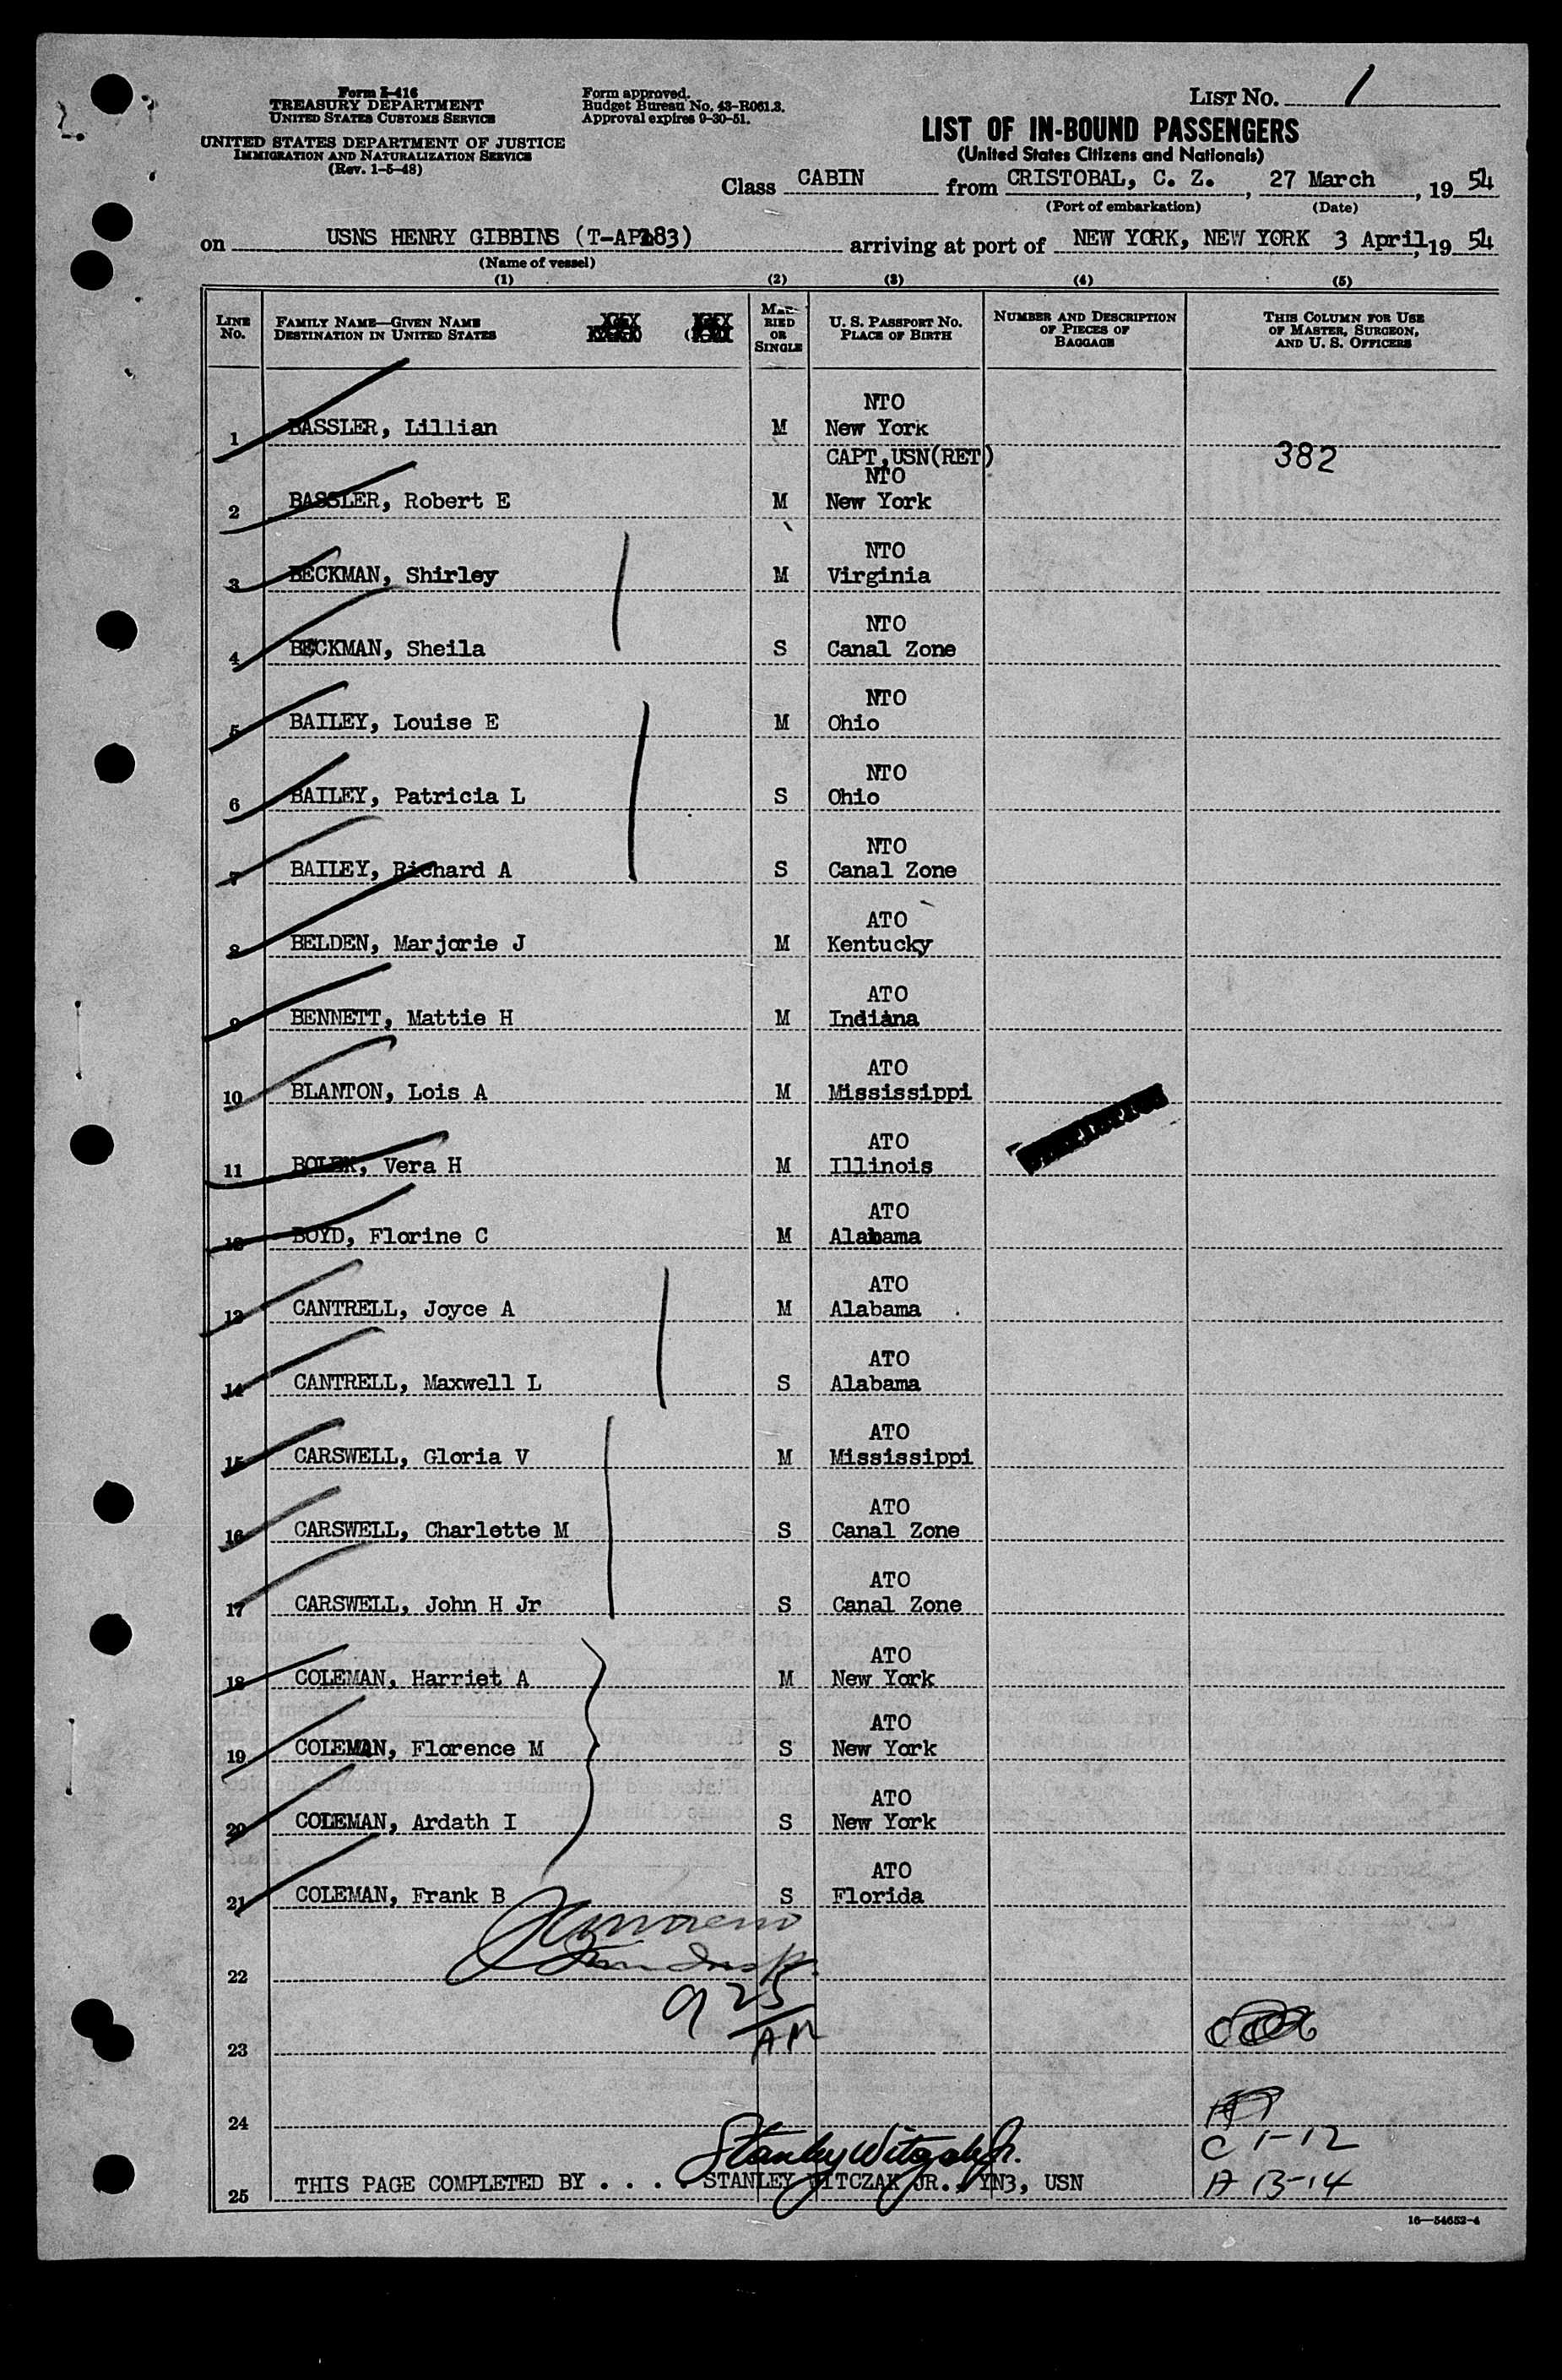 Form I-416
TREASURY DEPARTMENT
UNITED STATES CUSTOMS SERVICE
UNITED STATES DEPARTMENT OF JUSTICE
IMMIGRATION AND NATURALIZATION SERVICE
(Rev. 1-5-48)
Form approved.
Budget Bureau No. 43-R061.3.
Approval expires 9-30-51.
LIST No. 1
LIST OF IN-BOUND PASSENGERS
(United States Citizens and Nationals)
Class CABIN from CRISTOBAL, C. Z., 27 March, 19 54
(Port of embarkation) (Date)
on USNS HENRY GIBBINS (T-AP183) arriving at port of NEW YORK, NEW YORK 3 April, 19 54
(Name of vessel)
(1) (2) (3) (4) (5)
LINE No. FAMILY NAME—GIVEN NAME DESTINATION IN UNITED STATES MARRIED OR SINGLE U. S. PASSPORT No. PLACE OF BIRTH NUMBER AND DESCRIPTION OF PIECES OF BAGGAGE THIS COLUMN FOR USE OF MASTER, SURGEON, AND U. S. OFFICERS
NTO
1 BASSLER, Lillian M New York
CAPT,USN(RET) 382
NTO
2 BASSLER, Robert E M New York
NTO
3 BECKMAN, Shirley M Virginia
NTO
4 BECKMAN, Sheila S Canal Zone
NTO
5 BAILEY, Louise E M Ohio
NTO
6 BAILEY, Patricia L S Ohio
NTO
7 BAILEY, Richard A S Canal Zone
ATO
8 BELDEN, Marjorie J M Kentucky
ATO
9 BENNETT, Mattie H M Indiana
ATO
10 BLANTON, Lois A M Mississippi
ATO
11 BOLEK, Vera H M Illinois
ATO
12 BOYD, Florine C M Alabama
ATO
13 CANTRELL, Joyce A M Alabama
ATO
14 CANTRELL, Maxwell L S Alabama
ATO
15 CARSWELL, Gloria V M Mississippi
ATO
16 CARSWELL, Charlette M S Canal Zone
ATO
17 CARSWELL, John H Jr S Canal Zone
ATO
18 COLEMAN, Harriet A M New York
ATO
19 COLEMAN, Florence M S New York
ATO
20 COLEMAN, Ardath I S New York
ATO
21 COLEMAN, Frank B S Florida
22
9 25
AM
23
24
C 1-12
Stanley Witczak Jr.
25 THIS PAGE COMPLETED BY . . . . STANLEY WITCZAK JR., YN3, USN A 13-14
16—54652-4